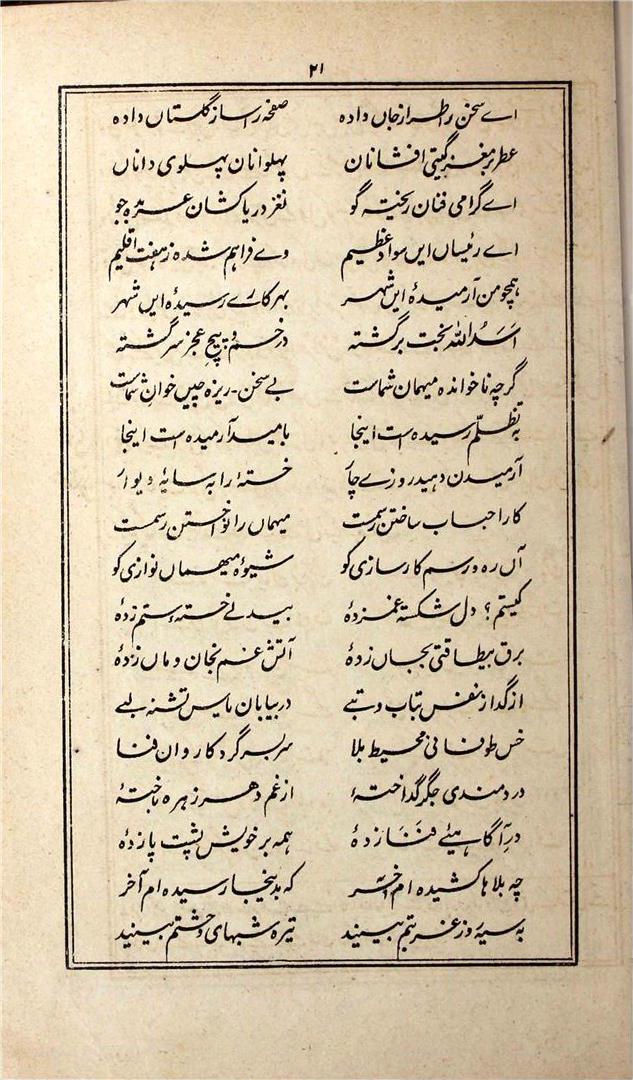 ۲۱
اے سخن را طراز جاں دادہ صفحہ را ساز گلستاں دادہ
عطر بر مغز گیتی افشانان پہلوانان پہلوی دانان
اے گرامی فنان ریختہ گو نغز دریا کشان عربدہ جو
اے رئیسان ایں سواد عظیم وے فراہم شدہ ز ہفت اقلیم
ہمچو من آرمیدۂ ایں شہر بہر کارے رسیدۂ ایں شہر
اسداللہ بخت برگشتہ در خم و پیچ عجز سرگشتہ
گرچہ ناخواندہ میہمان شماست بے سخن۔ ریزہ چیں خوان شماست
بہ تظلّم رسیدہ است اینجا بامید آرمیدہ است اینجا
آرمیدن دہید روزے چار خستۂ را بہ سایۂ دیوار
کار احباب ساختن رسمست میہماں را نواختن رسمت
آں رہ و رسم کارسازی کو شیوۂ میہماں نوازی کو
کیستم؟ دل شکستہ غمزدۂ بیدلے خستۂ ستم زدۂ
برق بیطاقتی بجاں زدۂ آتش غم بخان و ماں زدۂ
از گداز نفس بتاب و تبے در بیابان یاس تشنہ لبے
خس طوفانی محیط بلا سر بسر گرد کاروان فنا
دردمندی جگر گداختۂ از غم دہر زہرہ باختۂ
در آگاہیئے فَنَا زدۂ ہمہ بر خویش پشت پا زدۂ
چہ بلاہا کشیدہ ام آخر کہ بدینجا رسیدہ ام آخر
بہ سیہ روز غربتم بینید تیرہ شبہای وحشتم بینید